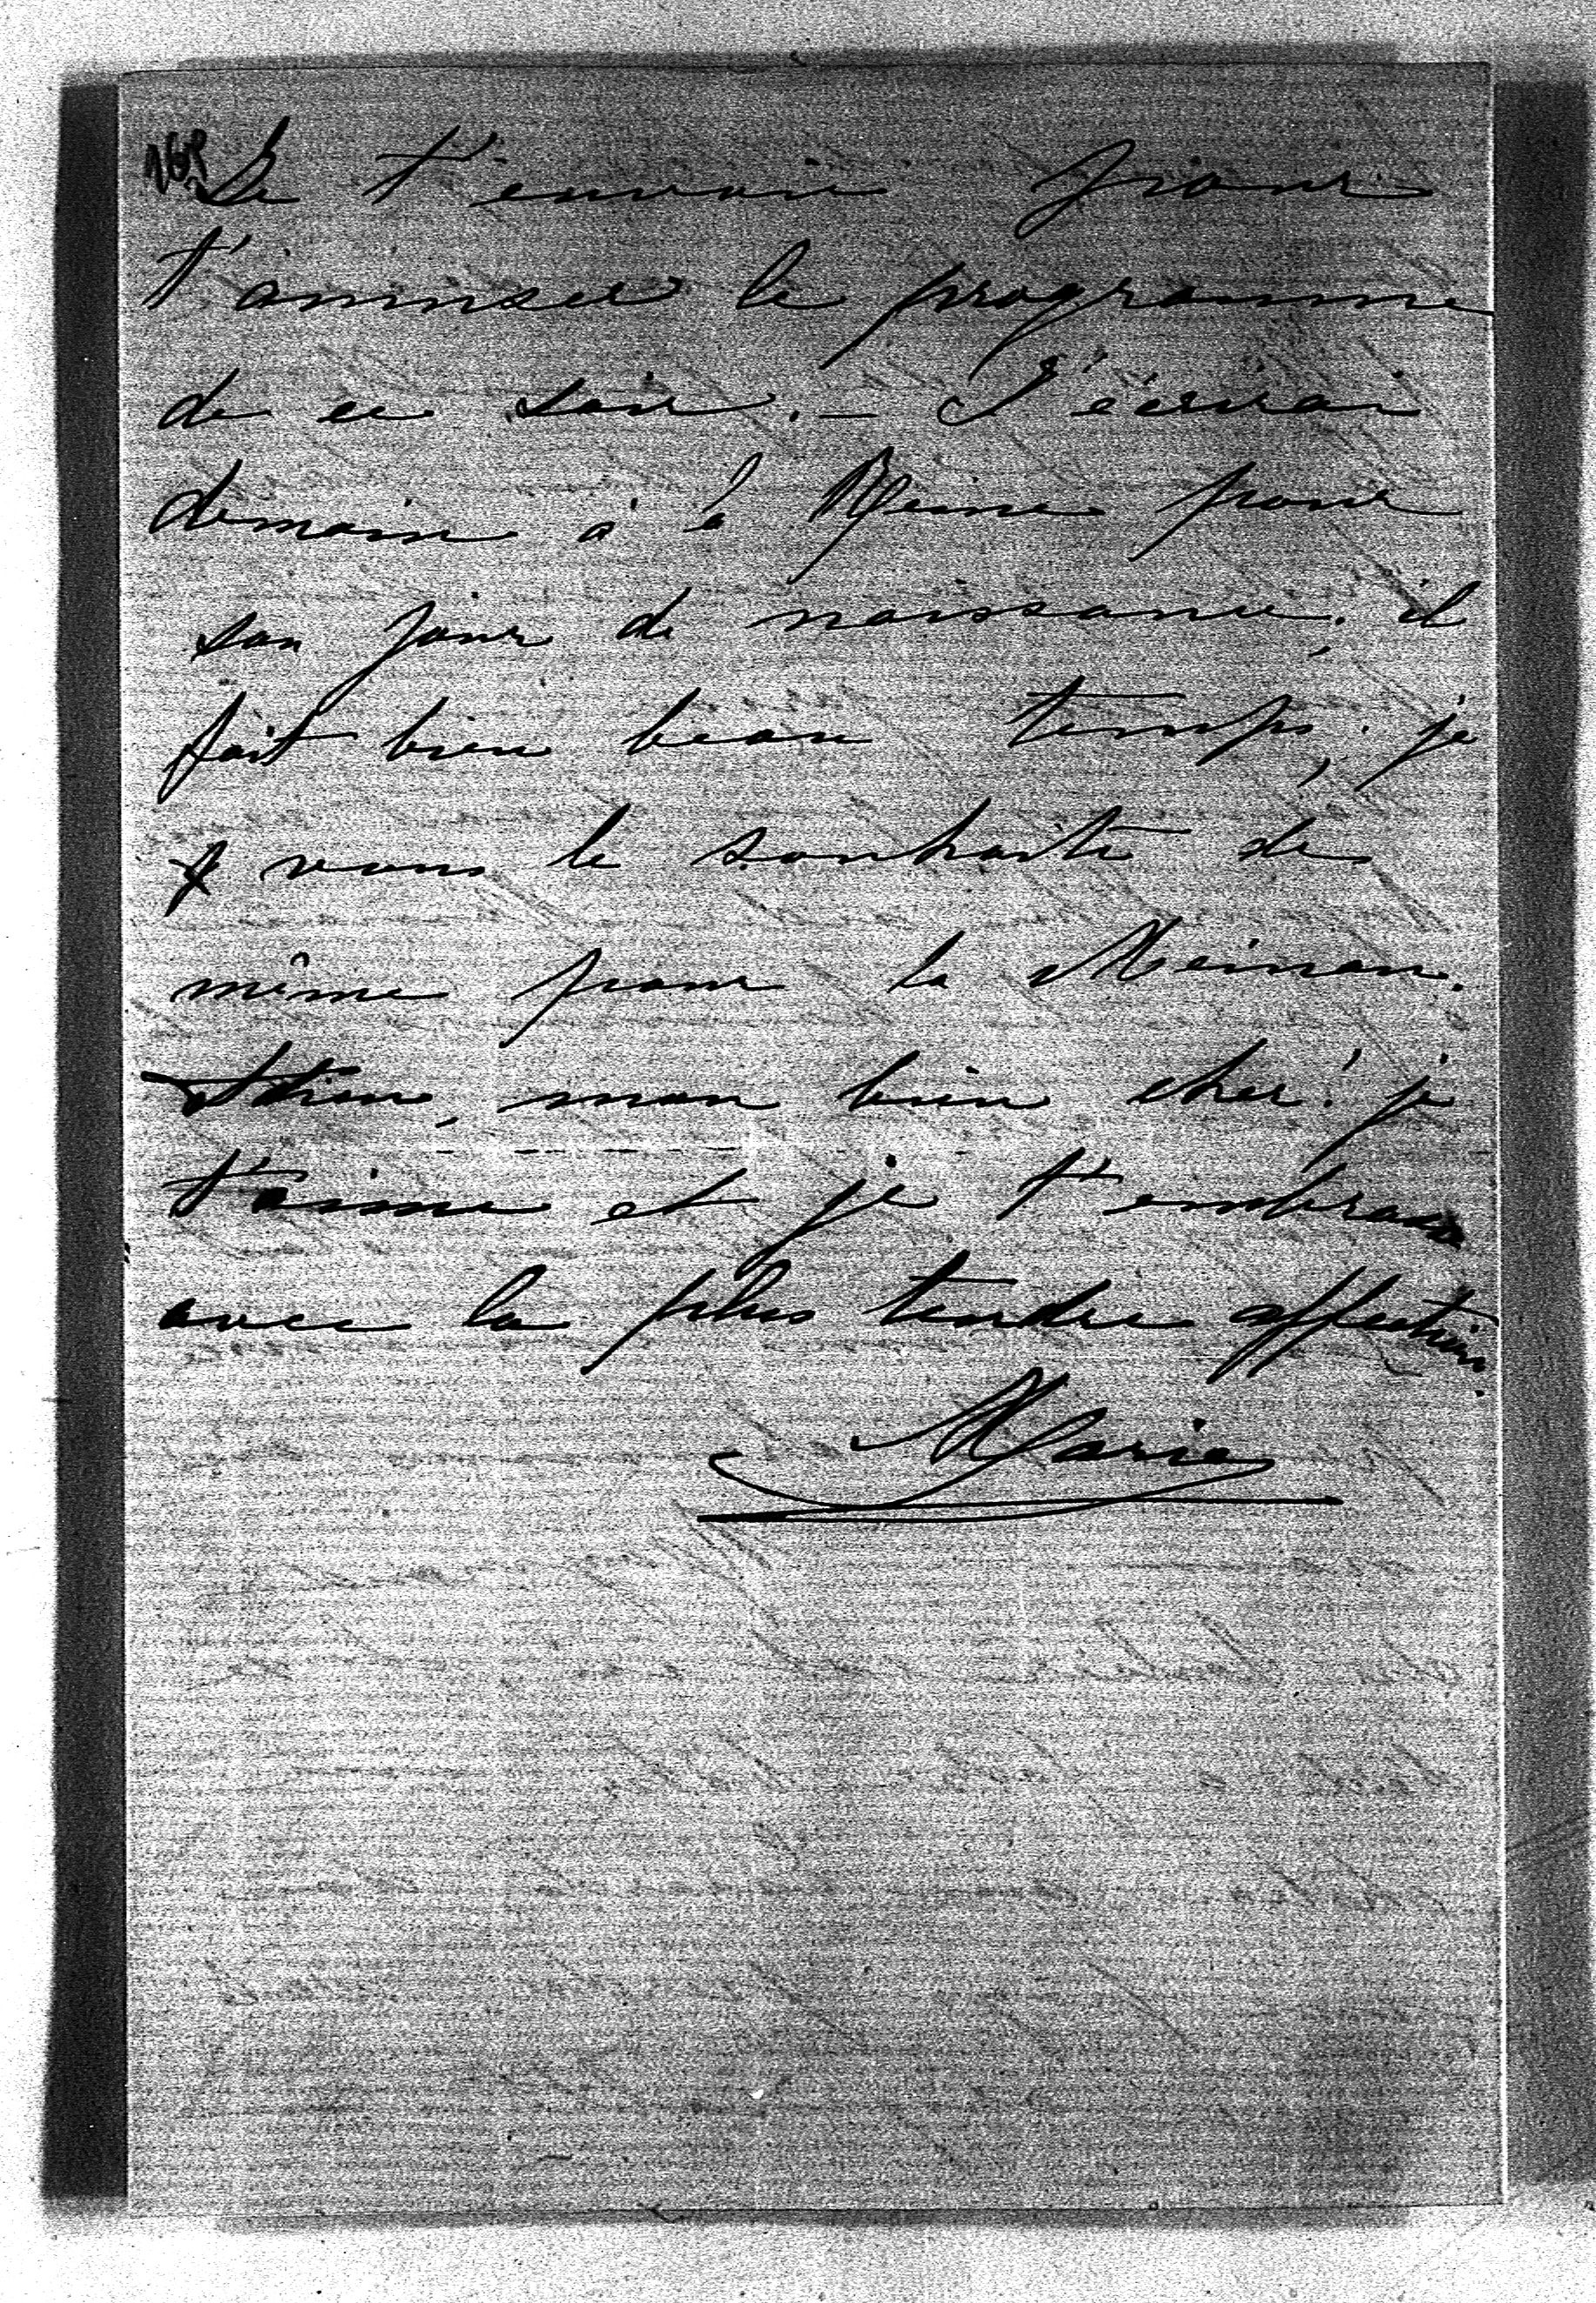 Je t'envoie pour
t'amuser le programme
de ce soir. – J'écrirai
demain à la Reine pour
son jour de naissance. il
fait bien beau temps, je
vous le souhaite de
même pour la Meinau.
Adieu, mon bien cher! je
t'aime et je t'embrasse
avec la plus tendre affection.
Marie